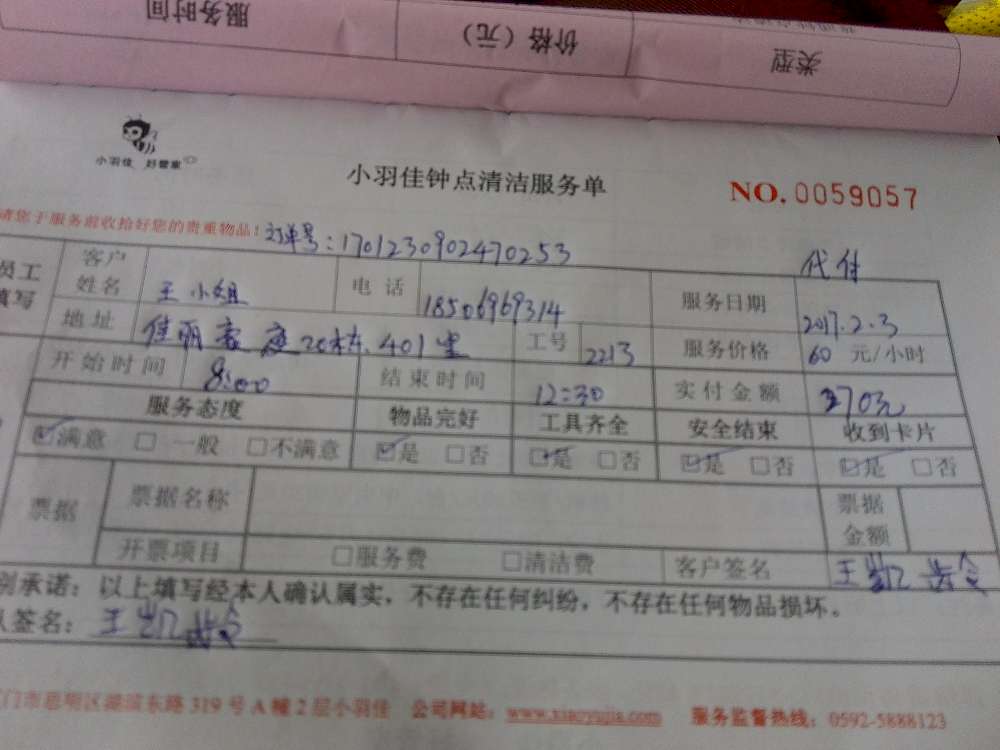 服务时间 价格（元） 类型
小羽佳 好管家
小羽佳钟点清洁服务单 NO. 0059057
请您于服务前收拾好您的贵重物品！ 订单号：1701230902470253 代付
员工填写 客户姓名 王小姐 电话 18506969314 服务日期 2017.2.3
地址 佳丽豪庭20栋.401室 工号 2213 服务价格 60 元/小时
开始时间 8:00 结束时间 12:30 实付金额 270元
服务态度 物品完好 工具齐全 安全结束 收到卡片
☑满意 □一般 □不满意 ☑是 □否 ☑是 □否 ☑是 □否 ☑是 □否
票据 票据名称 票据金额
开票项目 □服务费 □清洁费 客户签名 王凯
承诺：以上填写经本人确认属实，不存在任何纠纷，不存在任何物品损坏。
签名：王凯
门市思明区湖滨东路 319 号 A 幢 2 层小羽佳 公司网站：www.xiaoyujia.com 服务监督热线：0592-5888123